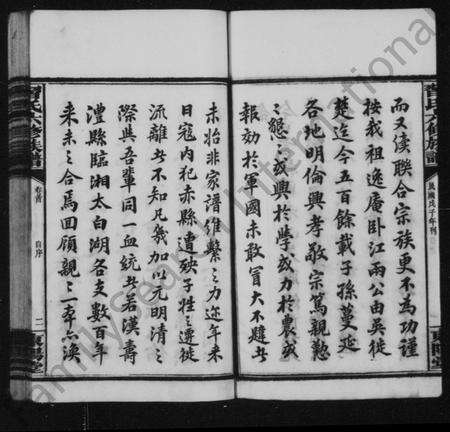 曾氏六修族譜
民國戊子年刊
而又渙聯合宗族更不為功謹
按我祖逸庵卧江兩公由吳徙
楚迄今五百餘載子孫蔓延
各地明倫興孝敬宗篤親懃
懃之或興於學或力於農或
報効於軍國未敢冒大不避此
未始非家譜維繫之力近年來
日寇内犯赤縣遭殃子姓之遷徙
流離者不知凡幾加以元明清之
際與吾輩同一血統者若漢壽
澧縣臨湘太白湖各支數百年
來未之合焉回顧親之一本未渙
曾氏六修族譜
卷首
自序
二
FamilySearch International